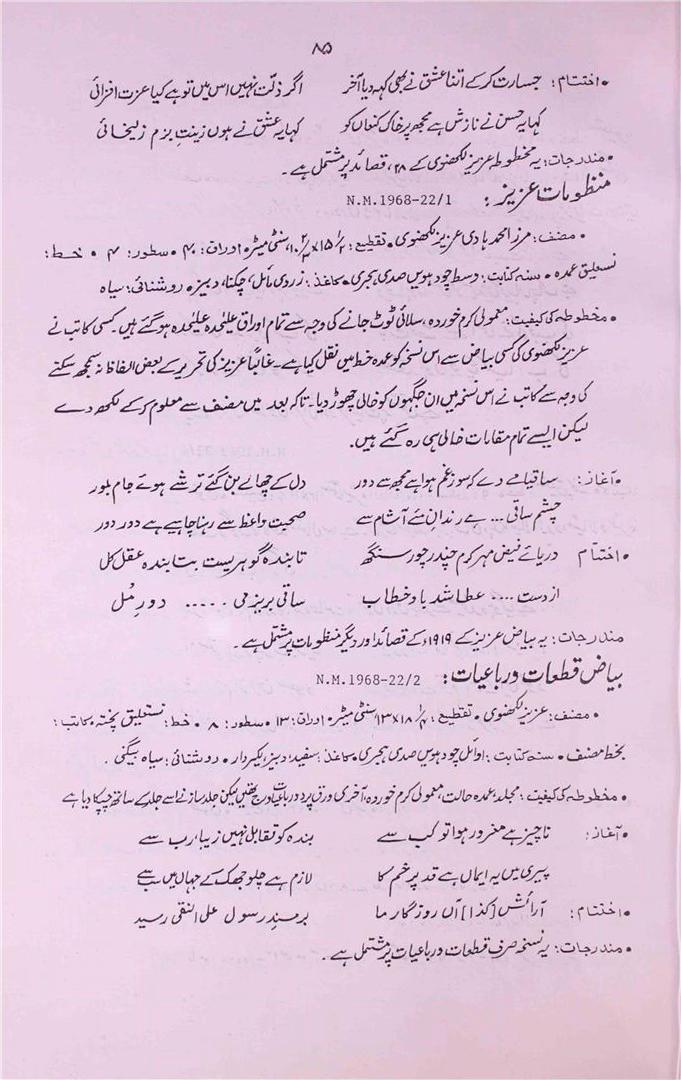 ۸۵
• اختتام: جسارت کرکے اتنا عشق نے بھی کہہ دیا آخر اگر ذلّت نہیں اس میں تو ہے کیا عزت افزائی
کہا یہ حسن نے نازش ہے مجھ پر خاکِ کنعاں کو کہا یہ عشق نے ہوں زینتِ بزم زلیخائی
• مندرجات: یہ مخطوطہ عزیز لکھنوی کے ۲۸، قصائد پر مشتمل ہے۔
منظومات عزیز: N.M.1968-22/1
• مصنف: مرزا محمد ہادی عزیز لکھنوی • تقطیع: سنٹی میٹر • اوراق: ۴۰ • سطور: ۴ • خط:
نستعلیق عمدہ • سنہ کتابت: وسط چودھویں صدی ہجری • کاغذ: زردی مائل، چکنا، دبیز • روشنائی: سیاہ
• مخطوطہ کی کیفیت: معمولی کرم خوردہ، سلائی ٹوٹ جانے کی وجہ سے تمام اوراق علیٰحدہ علیٰحدہ ہوگئے ہیں۔ کسی کاتب نے
عزیز لکھنوی کی کسی بیاض سے اس نسخہ کو عمدہ خط میں نقل کیا ہے۔ غالباً عزیز کی تحریر کے بعض الفاظ نہ سمجھ سکنے
کی وجہ سے کاتب نے اس نسخہ میں ان جگہوں کو خالی چھوڑ دیا۔ تاکہ بعد میں مصنف سے معلوم کرکے لکھ دے
لیکن ایسے تمام مقامات خالی ہی رہ گئے ہیں۔
• آغاز: ساقیا مے دے کہ سوز غم ہوا ہے مجھ سے دور دل کے چھالے بن گئے ترشے ہوئے جام بلور
چشم ساقی ... ہے رندانِ مئے آشام سے صحبت واعظ سے رہنا چاہیے ہے دور دور
• اختتام دریائے فیض مہر کرم چندر چور سنگھ تابندہ گوہریست بتا بندہ عقل کل
از دست .... عطا شد باد خطاب ساقی بریز می ..... دور مُل
مندرجات: یہ بیاض عزیز کے ۱۹۱۹ء کے قصائد اور دیگر منظومات پر مشتمل ہے۔
بیاض قطعات و رباعیات: N.M.1968-22/2
• مصنف: عزیز لکھنوی • تقطیع: سنٹی میٹر • اوراق: ۱۳ • سطور: ۸ • خط: نستعلیق پختہ • کاتب:
بخط مصنف • سنہ کتابت: اوائل چودھویں صدی ہجری • کاغذ: سفید، دبیز، لکیردار • روشنائی: سیاہ، بیگنی۔
• مخطوطہ کی کیفیت: مجلد، عمدہ حالت، معمولی کرم خوردہ، آخری ورق پر دو رباعیات درج تھیں لیکن جلد ساز نے اسے جلد کے ساتھ چپکا دیا ہے
• آغاز: ناچیز ہے مغرور ہوا تو کب سے بندہ کو تقابل نہیں زیبا رب سے
پیری میں یہ ایماں ہے قد پر خم کا لازم ہے چلو جھک کے جہاں میں سب سے
• اختتام: آرائش [کذا] آں روزگار ما بر مسندِ رسول علی النقی رسید
• مندرجات: یہ نسخہ صرف قطعات و رباعیات پر مشتمل ہے۔